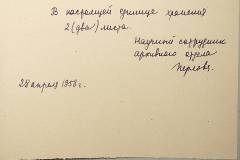 В настоящей единице хранения
2 (два) листа.
Научный сотрудник
архивного отдела
28 апреля 1958 г.